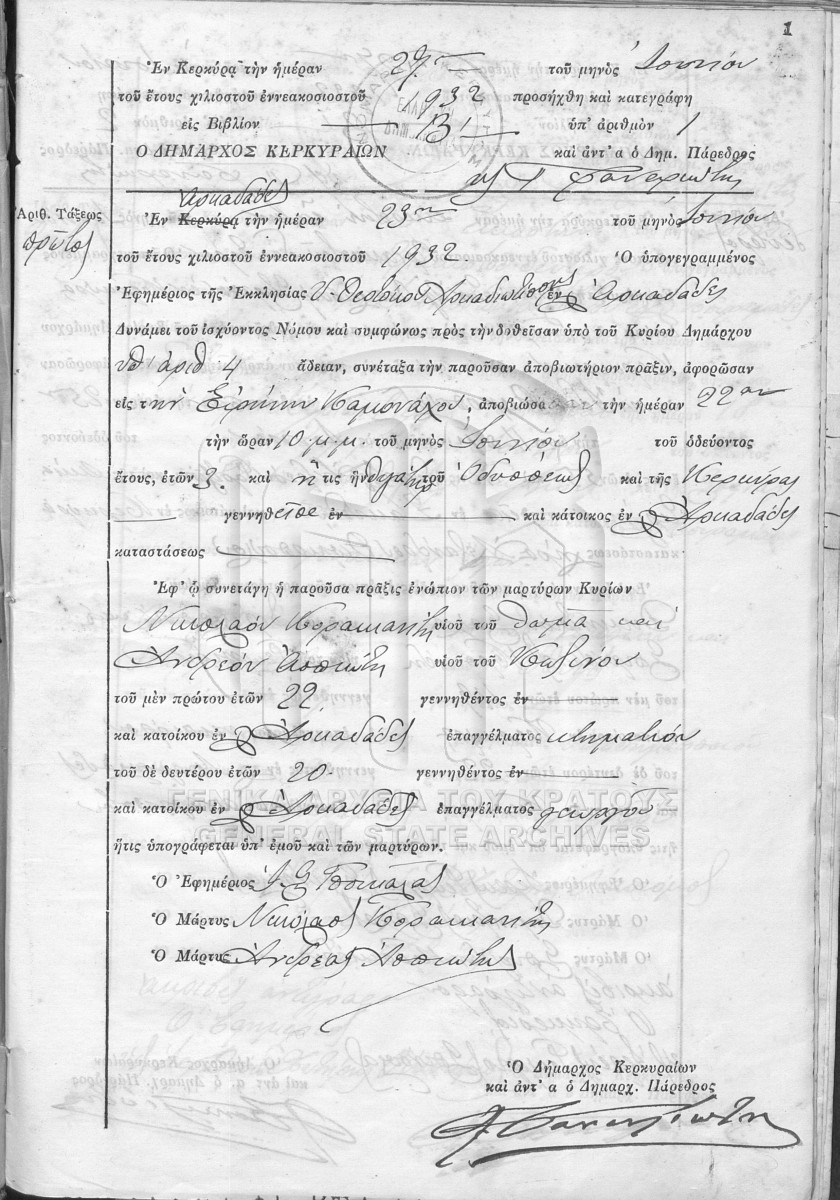 1
Ἐν Κερκύρᾳ τὴν ἡμέραν 29ην τοῦ μηνὸς Ἰουνίου
τοῦ ἔτους χιλιοστοῦ ἐννεακοσιοστοῦ 1932 προσήχθη καὶ κατεγράφη
εἰς Βιβλίον Β' ὑπ' ἀριθμὸν 1
Ο ΔΗΜΑΡΧΟΣ ΚΕΡΚΥΡΑΙΩΝ καὶ ἀντ' α ὁ Δημ. Πάρεδρος
Ἀρκαδάδες
Ἀριθ. Τάξεως
πρῶτος
Ἐν Κερκύρᾳ τὴν ἡμέραν 23ην τοῦ μηνὸς Ἰουνίου
τοῦ ἔτους χιλιοστοῦ ἐννεακοσιοστοῦ 1932. Ὁ ὑπογεγραμμένος
Ἐφημέριος τῆς Ἐκκλησίας Υ. Θεοτόκου ἐν Ἀρκαδάδες
Δυνάμει τοῦ ἰσχύοντος Νόμου καὶ συμφώνως πρὸς τὴν δοθεῖσαν ὑπὸ τοῦ Κυρίου Δημάρχου
ὑπ' ἀριθ 4 ἄδειαν, συνέταξα τὴν παροῦσαν ἀποβιωτήριον πρᾶξιν, ἀφορῶσαν
εἰς τὴν Εἰρήνην Καμονάχου, ἀποβιώσα τὴν ἡμέραν 22αν
τὴν ὥραν 10 μ.μ. τοῦ μηνὸς Ἰουνίου τοῦ ὁδεύοντος
ἔτους, ἐτῶν 3. καὶ ἥ τις ἦν θυγάτηρ τοῦ Ὀδυσσέως καὶ τῆς Κερκύρας
γεννηθεῖσα ἐν καὶ κάτοικος ἐν Ἀρκαδάδες
καταστάσεως
Ἐφ' ᾧ συνετάγη ἡ παροῦσα πρᾶξις ἐνώπιον τῶν μαρτύρων Κυρίων
Νικόλαον υἱοῦ τοῦ Θωμᾶ καὶ
Ἀνδρέαν Ἀσπιώτη υἱοῦ τοῦ
τοῦ μὲν πρώτου ἐτῶν 22 γεννηθέντος ἐν
καὶ κατοίκου ἐν Ἀρκαδάδες ἐπαγγέλματος κτηματίου
τοῦ δὲ δευτέρου ἐτῶν 20 γεννηθέντος ἐν
καὶ κατοίκου ἐν Ἀρκαδάδες ἐπαγγέλματος γεωργοῦ
ΓΕΝΙΚΑ ΑΡΧΕΙΑ ΤΟΥ ΚΡΑΤΟΥΣ
GENERAL STATE ARCHIVES
ἥτις ὑπογράφεται ὑπ' ἐμοῦ καὶ τῶν μαρτύρων.
Ὁ Ἐφημέριος
Ὁ Μάρτυς Νικόλαος
Ὁ Μάρτυς Ἀνδρέας Ἀσπιώτης
Ὁ Δήμαρχος Κερκυραίων
καὶ ἀντ' α ὁ Δημαρχ. Πάρεδρος